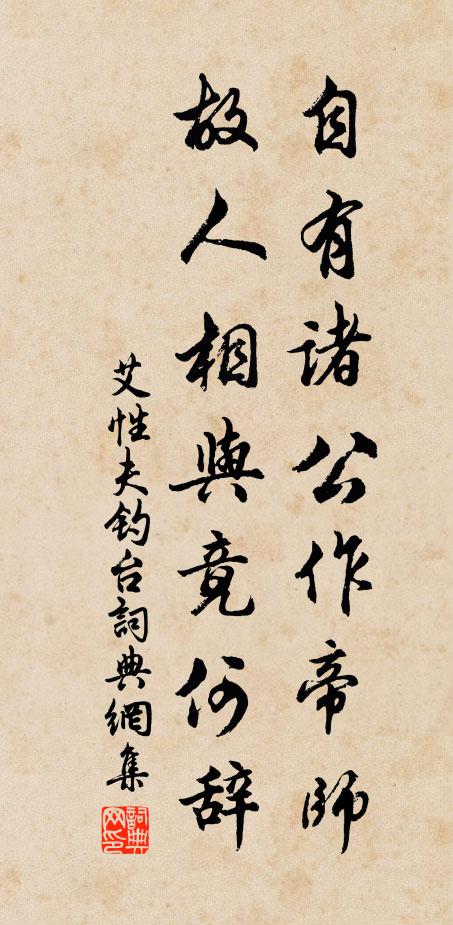 自有诸公作帝師
故人相與竟何辞
艾性夫钓台詞典網集
詞典网印